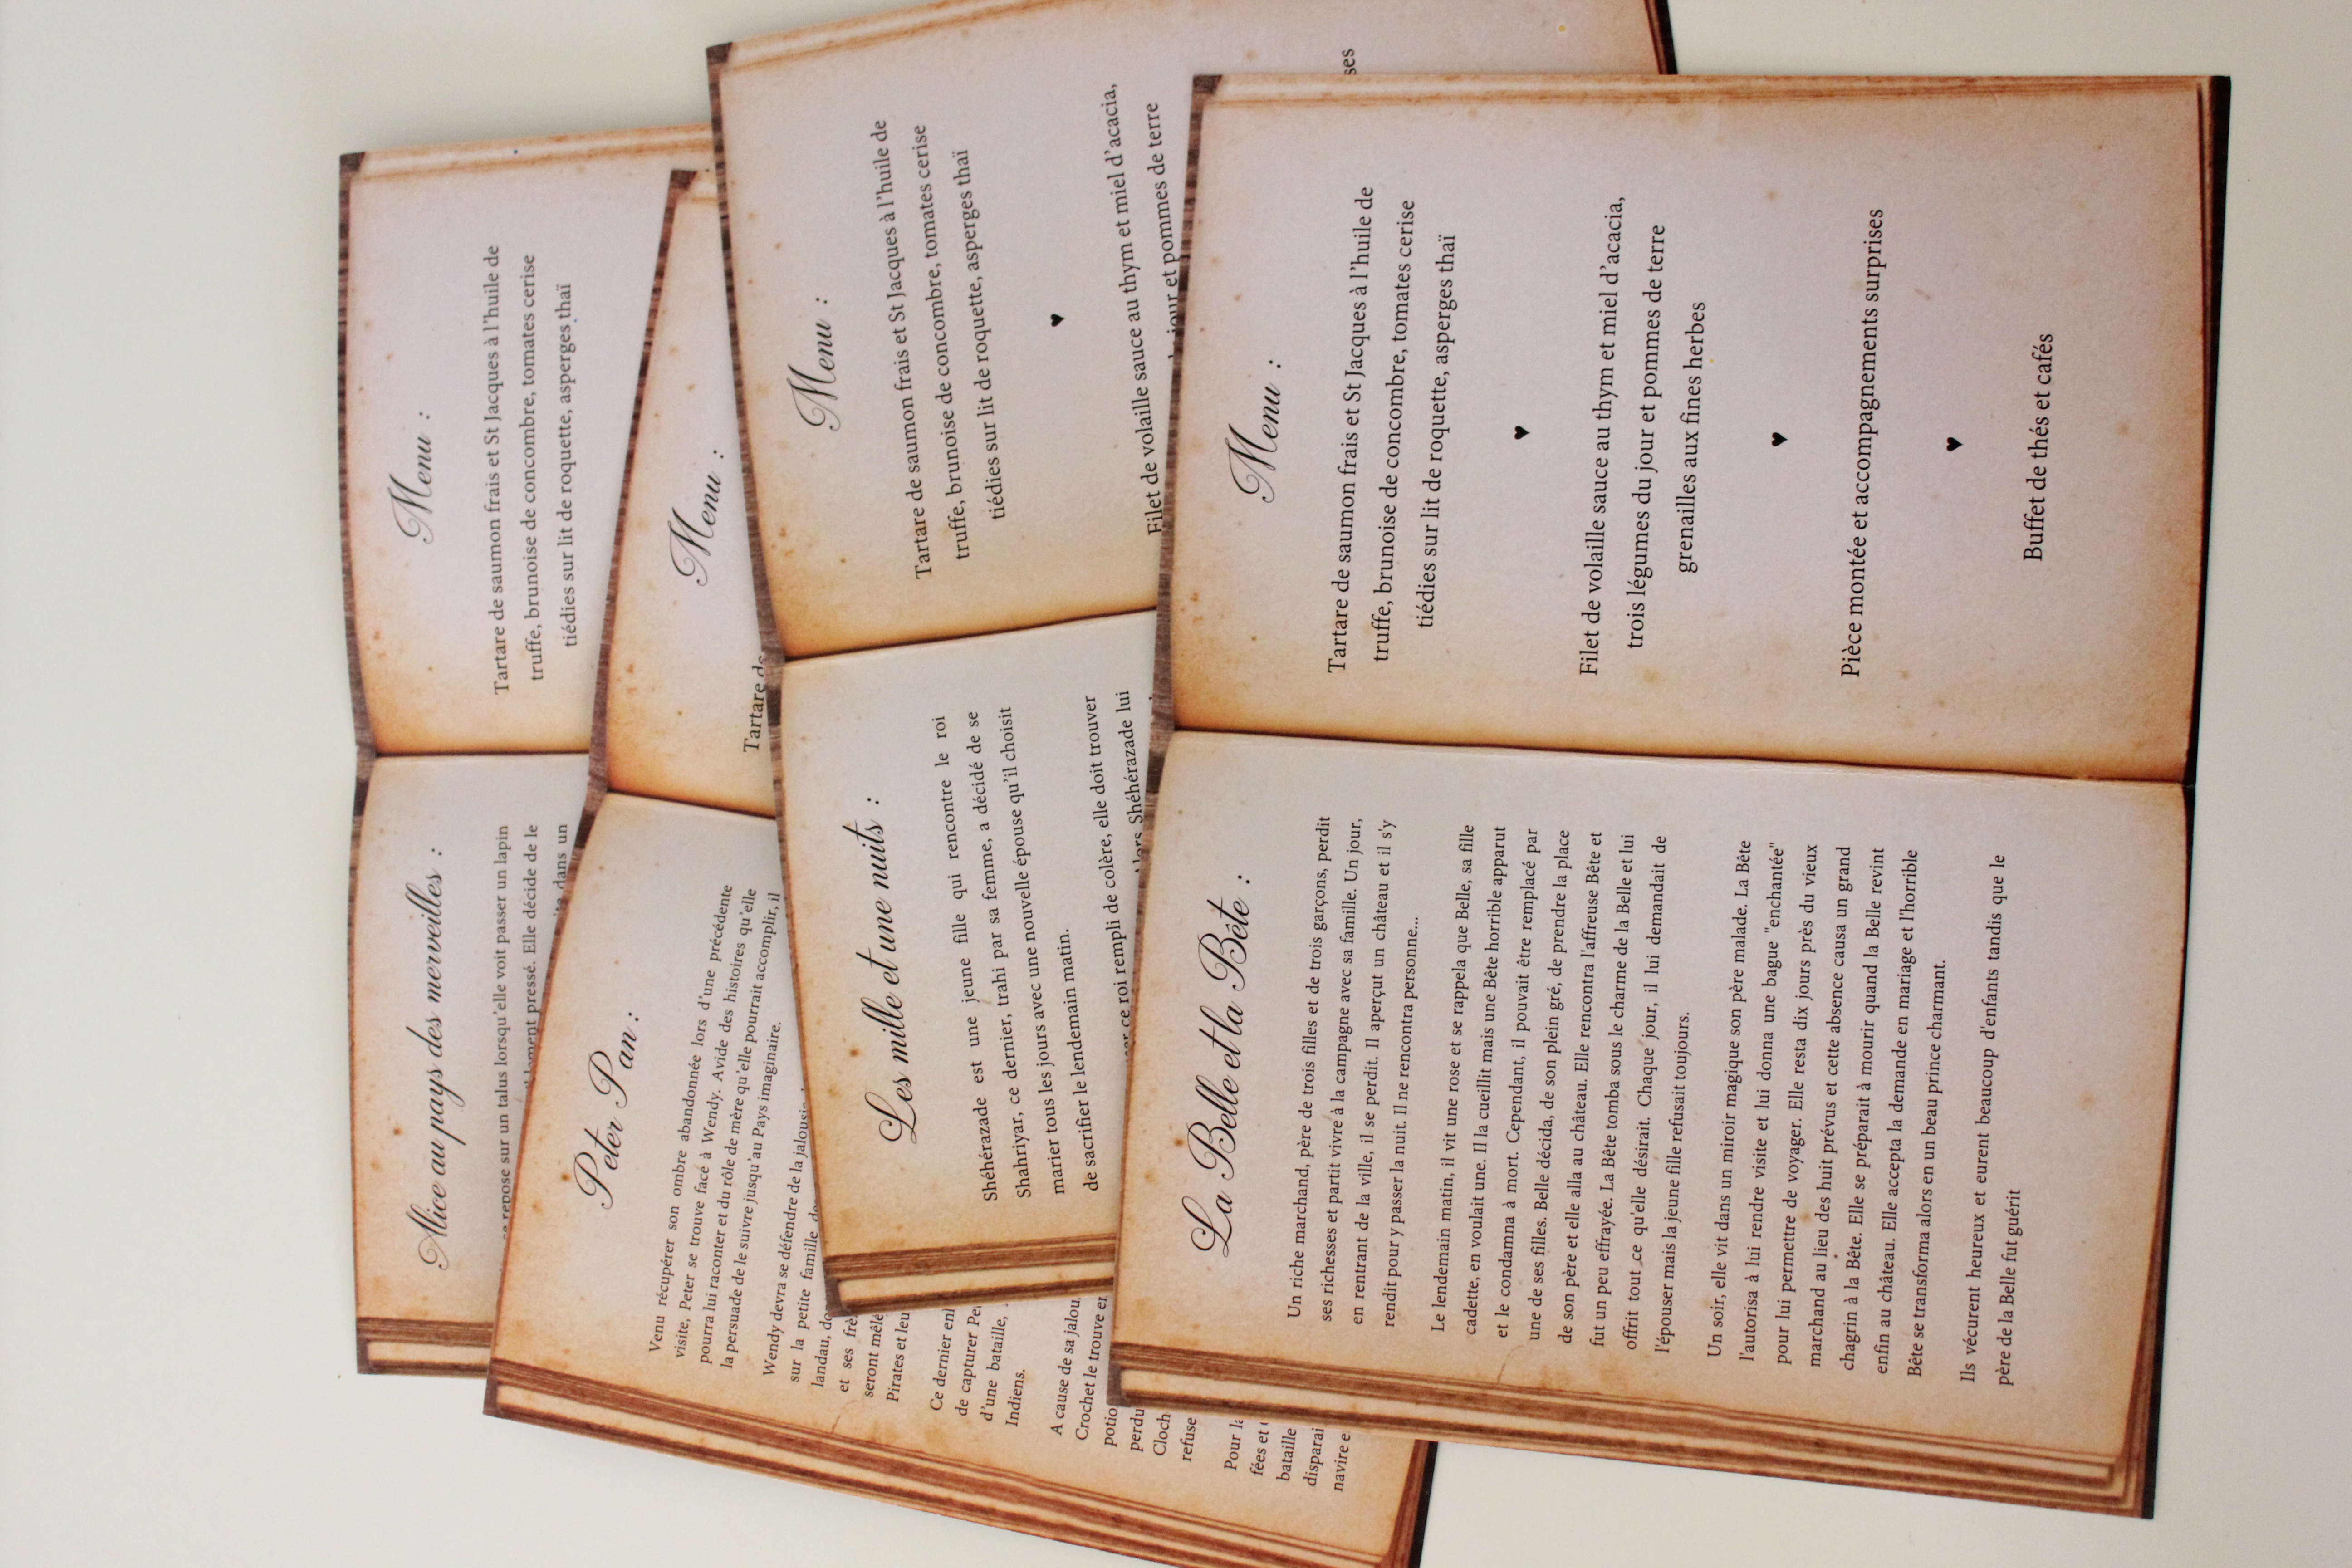 Alice au pays des merveilles :
se repose sur un talus lorsqu'elle voit passer un lapin
pressé. Elle décide de le
dans un
Menu :
Tartare de saumon frais et St Jacques à l'huile de
truffe, brunoise de concombre, tomates cerise
tiédies sur lit de roquette, asperges thaï
Peter Pan :
Venu récupérer son ombre abandonnée lors d'une précédente
visite, Peter se trouve face à Wendy. Avide des histoires qu'elle
pourra lui raconter et du rôle de mère qu'elle pourrait accomplir, il
la persuade de le suivre jusqu'au Pays imaginaire.
Wendy devra se défendre de la jalousie
sur la petite famille
landau,
et ses
seront
Pirates et
Ce dernier
de capturer
d'une bataille,
Indiens.
A cause de sa
Crochet le trouve
refuse
Pour
fées et
bataille
navire
Menu :
Tartare de
Les mille et une nuits :
Shéhérazade est une jeune fille qui rencontre le roi
Shahriyar, ce dernier, trahi par sa femme, a décidé de se
marier tous les jours avec une nouvelle épouse qu'il choisit
de sacrifier le lendemain matin.
ce roi rempli de colère, elle doit trouver
Shéhérazade lui
Menu :
Tartare de saumon frais et St Jacques à l'huile de
truffe, brunoise de concombre, tomates cerise
tiédies sur lit de roquette, asperges thaï
♥
Filet de volaille sauce au thym et miel d'acacia,
jour et pommes de terre
La Belle et la Bête :
Un riche marchand, père de trois filles et de trois garçons, perdit
ses richesses et partit vivre à la campagne avec sa famille. Un jour,
en rentrant de la ville, il se perdit. Il aperçut un château et il s'y
rendit pour y passer la nuit. Il ne rencontra personne...
Le lendemain matin, il vit une rose et se rappela que Belle, sa fille
cadette, en voulait une. Il la cueillit mais une Bête horrible apparut
et le condamna à mort. Cependant, il pouvait être remplacé par
une de ses filles. Belle décida, de son plein gré, de prendre la place
de son père et elle alla au château. Elle rencontra l'affreuse Bête et
fut un peu effrayée. La Bête tomba sous le charme de la Belle et lui
offrit tout ce qu'elle désirait. Chaque jour, il lui demandait de
l'épouser mais la jeune fille refusait toujours.
Un soir, elle vit dans un miroir magique son père malade. La Bête
l'autorisa à lui rendre visite et lui donna une bague "enchantée"
pour lui permettre de voyager. Elle resta dix jours près du vieux
marchand au lieu des huit prévus et cette absence causa un grand
chagrin à la Bête. Elle se préparait à mourir quand la Belle revint
enfin au château. Elle accepta la demande en mariage et l'horrible
Bête se transforma alors en un beau prince charmant.
Ils vécurent heureux et eurent beaucoup d'enfants tandis que le
père de la Belle fut guérit
Menu :
Tartare de saumon frais et St Jacques à l'huile de
truffe, brunoise de concombre, tomates cerise
tiédies sur lit de roquette, asperges thaï
♥
Filet de volaille sauce au thym et miel d'acacia,
trois légumes du jour et pommes de terre
grenailles aux fines herbes
♥
Pièce montée et accompagnements surprises
♥
Buffet de thés et cafés